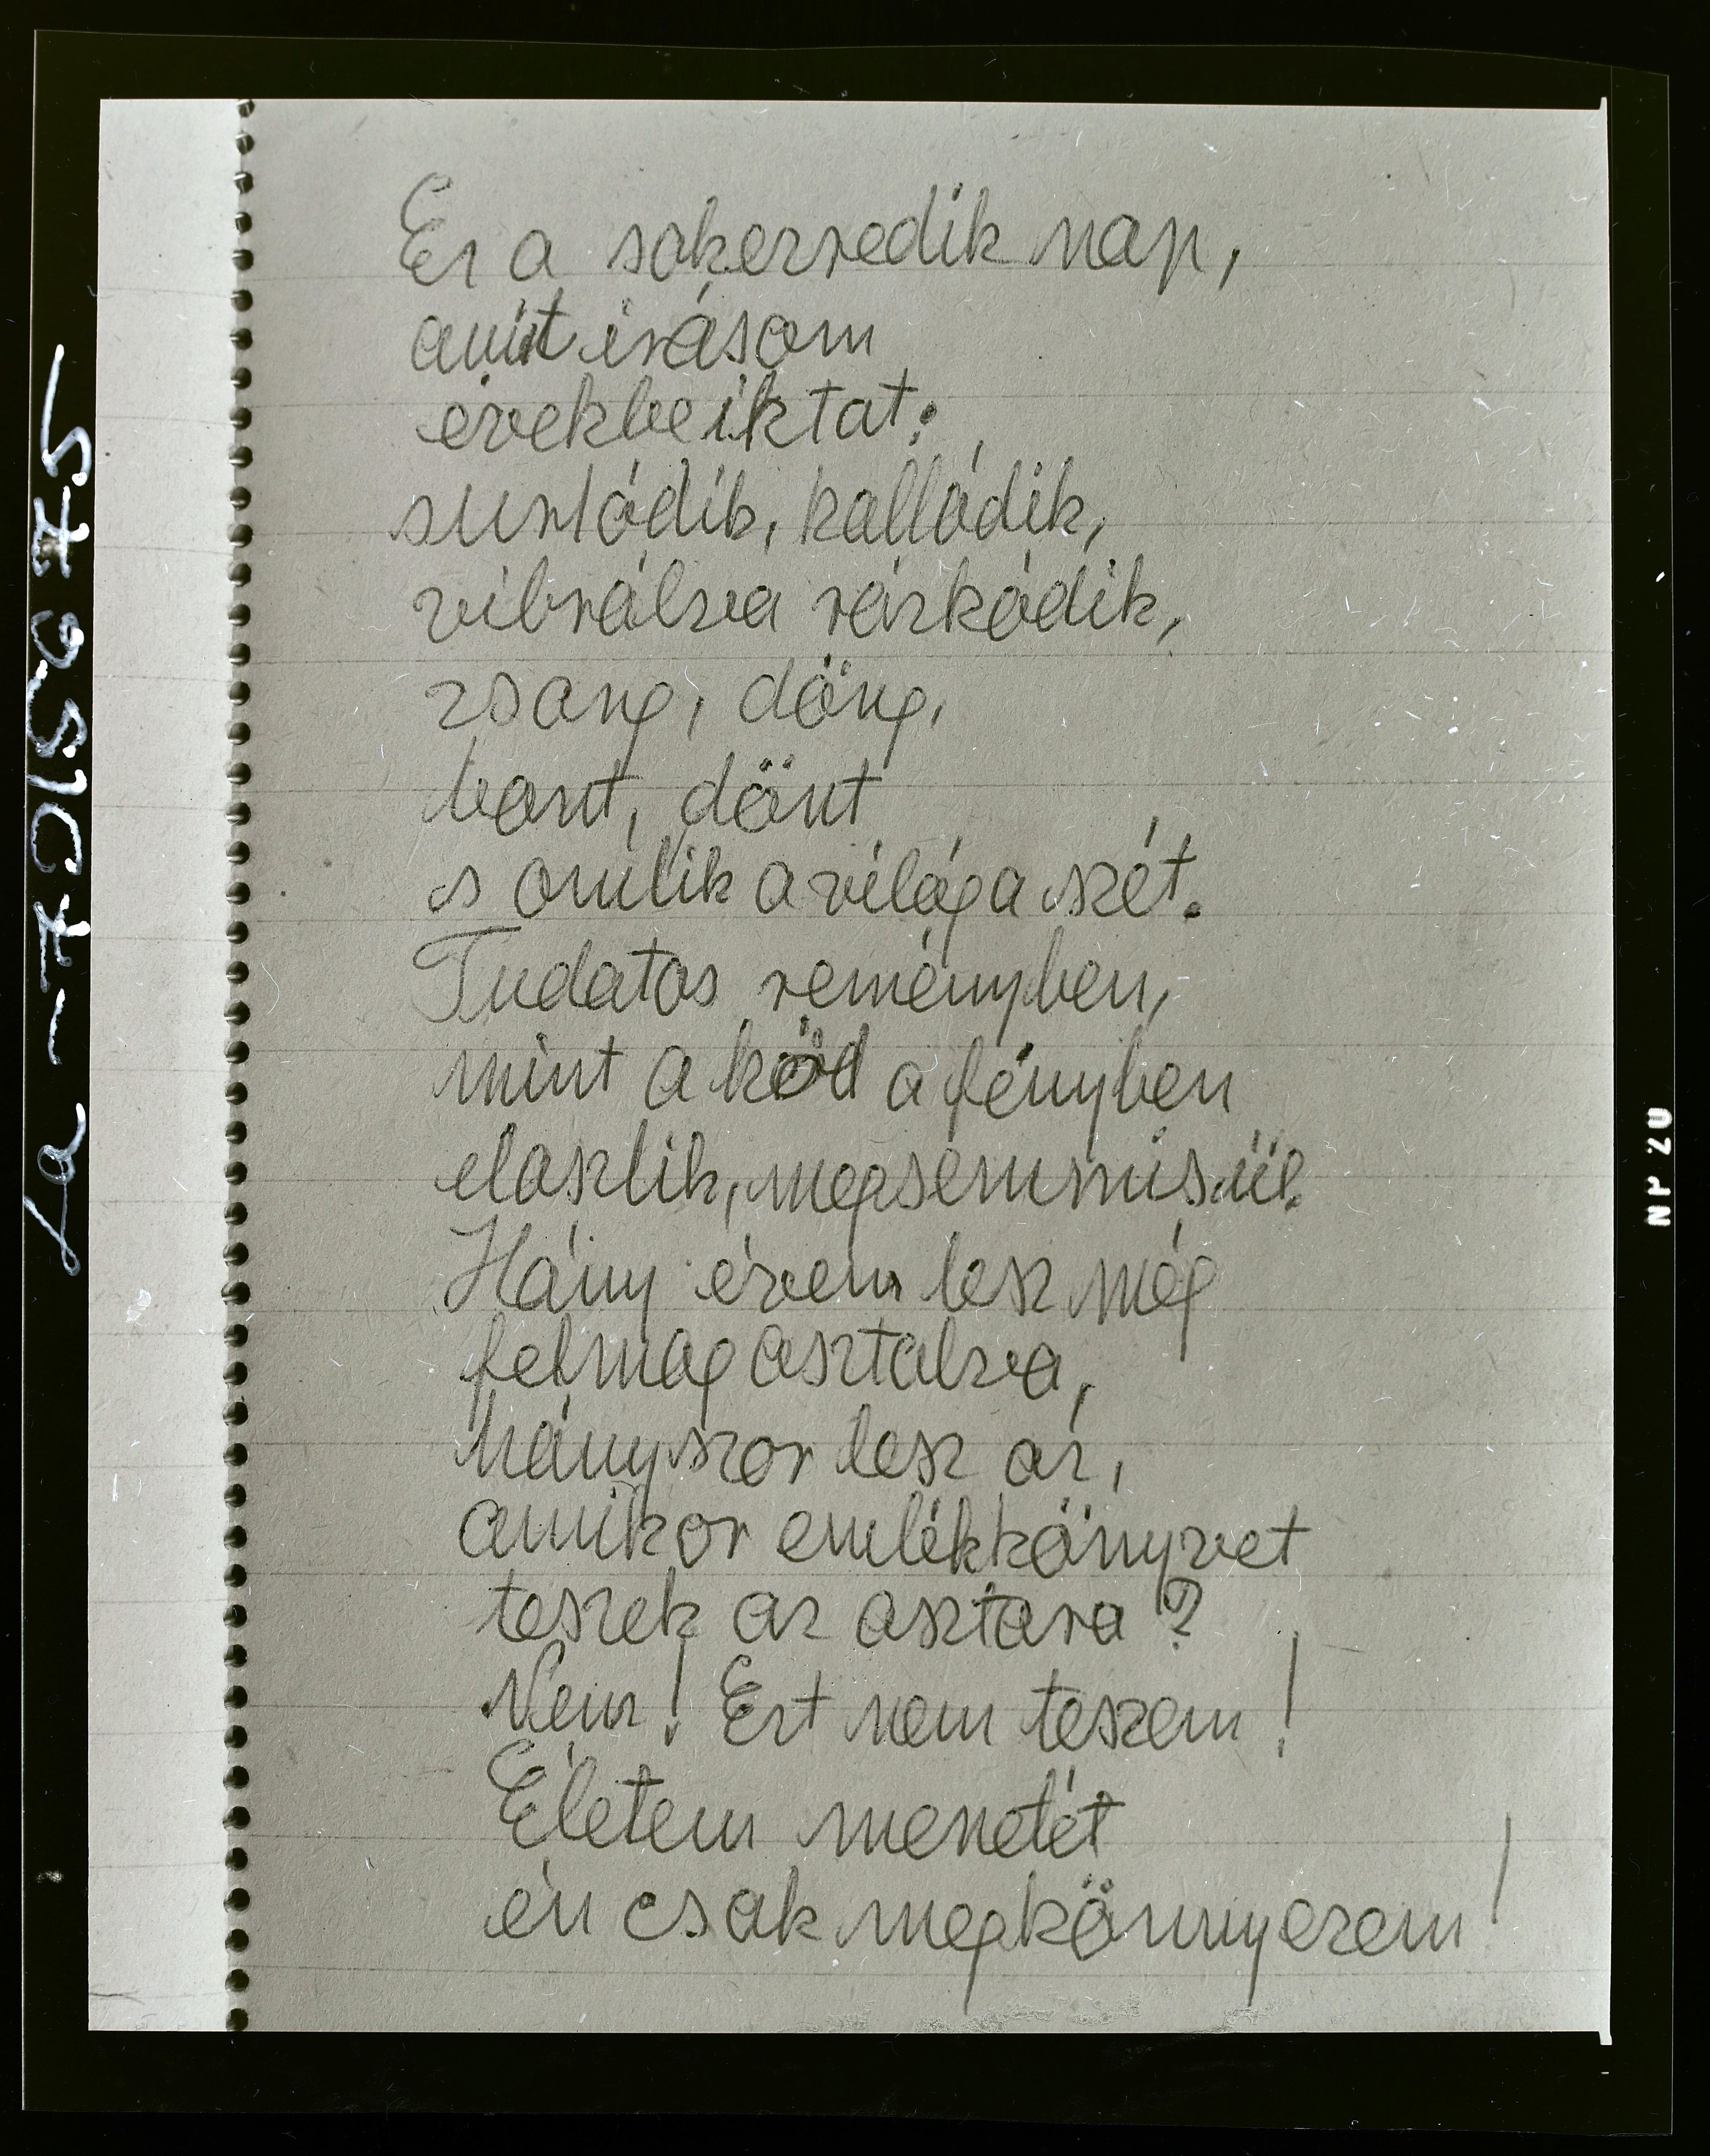 Ez a sokezredik nap,
amit irásom
évekbe iktat:
surlódik, kallódik,
vibrálva rázkódik,
zsong, döng,
bont, dönt
s omlik a világa szét.
Tudatos reményben,
mint a köd a fényben
eloszlik, megsemmisül.
Hány évem lesz még
felmagasztalva,
hányszor lesz az,
amikor emlékkönyvet
teszek az asztara?
Nem! Ezt nem teszem!
Életem menetét
én csak megkönnyezem!
NP 20